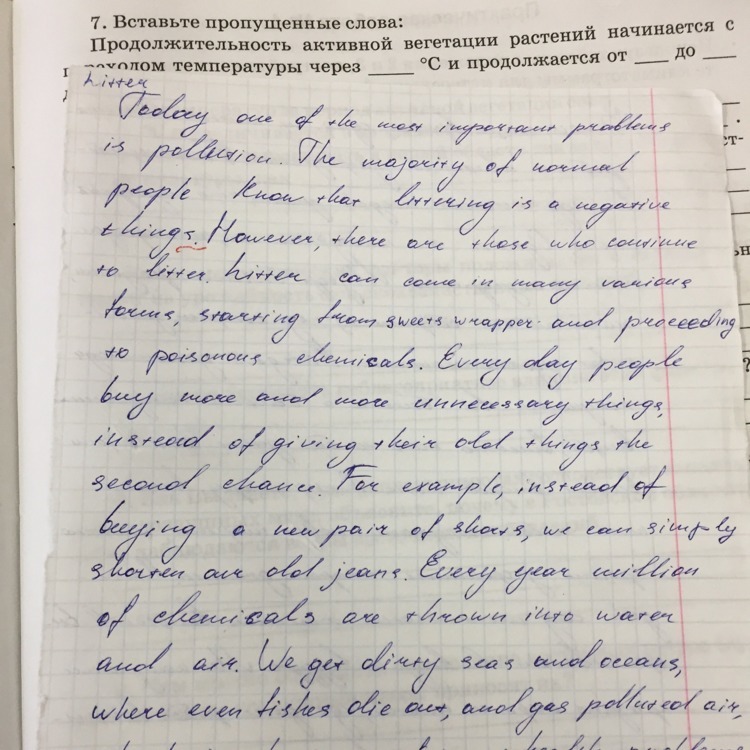 7. Вставьте пропущенные слова:
Продолжительность активной вегетации растений начинается с
реходом температуры через ____ °C и продолжается от ___ до ___
Litter
Today one of the most important problems
is pollution. The majority of normal
people know that littering is a negative
things. However, there are those who continue
to litter. Litter can come in many various
forms, starting from sweets wrapper and proceeding
to poisonous chemicals. Every day people
buy more and more unnecessary things,
instead of giving their old things the
second chance. For example, instead of
buying a new pair of shorts, we can simply
shorten our old jeans. Every year million
of chemicals are thrown into water
and air. We get dirty seas and oceans,
where even fishes die out, and gas polluted air,